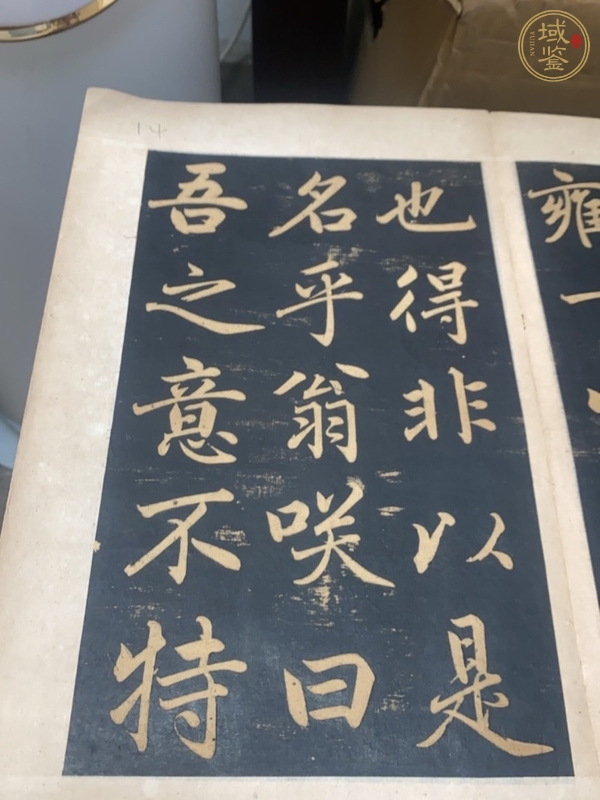 雍一
也得非以是
名乎翁咲曰
吾之意不特
14
域鉴
YUJIAN